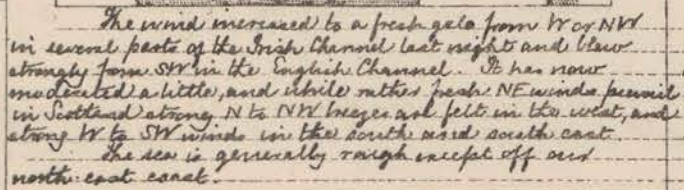 The wind increased to a fresh gale from W or NW
in several parts of the Irish Channel last night and blew
strongly from SW in the English Channel. It has now
moderated a little, and while rather fresh NE winds prevail
in Scotland strong N to NW breezes are felt in the west, and
strong W to SW winds in the south and south east.
The sea is generally rough except off our
north east coast.